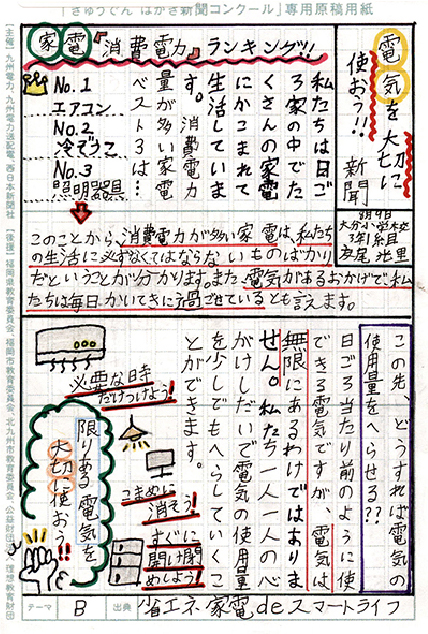 「きゅうでん はがき新聞コンクール」専用原稿用紙
電気を大切に
使おう!! 新聞
8月9日
大分小学校
3年1組
家電「消費電力」ランキング!!
私たちは日ご
ろ家の中でた
くさんの家電
にかこまれて
生活していま
す。消費電力
量が多い家電
ベスト3は…
No.1
エアコン
No.2
冷ぞうこ
No.3
照明器具
このことから、消費電力が多い家電は、私たち
の生活に必ずなくてはならないものばかり
だということが分かります。また、電気があるおかげで、私
たちは毎日、かいてきに過ごせているとも言えます。
この先、どうすれば電気の
使用量をへらせる??
日ごろ当たり前のように使
できる電気ですが、電気は
無限にあるわけではありま
せん。私たち一人一人の心
がけしだいで電気の使用量
を少しでもへらしていくこ
とができます。
必要な時
だけつけよう!
こまめに
消そう!
すぐに
開け閉
めしよう!
限りある電気を
大切に使おう!!
テーマ B 出典 省エネ家電deスマートライフ
主催：九州電力、九州電力送配電、西日本新聞社 【後援】福岡県教育委員会、福岡市教育委員会、北九州市教育委員会、公益財団法人 理想教育財団